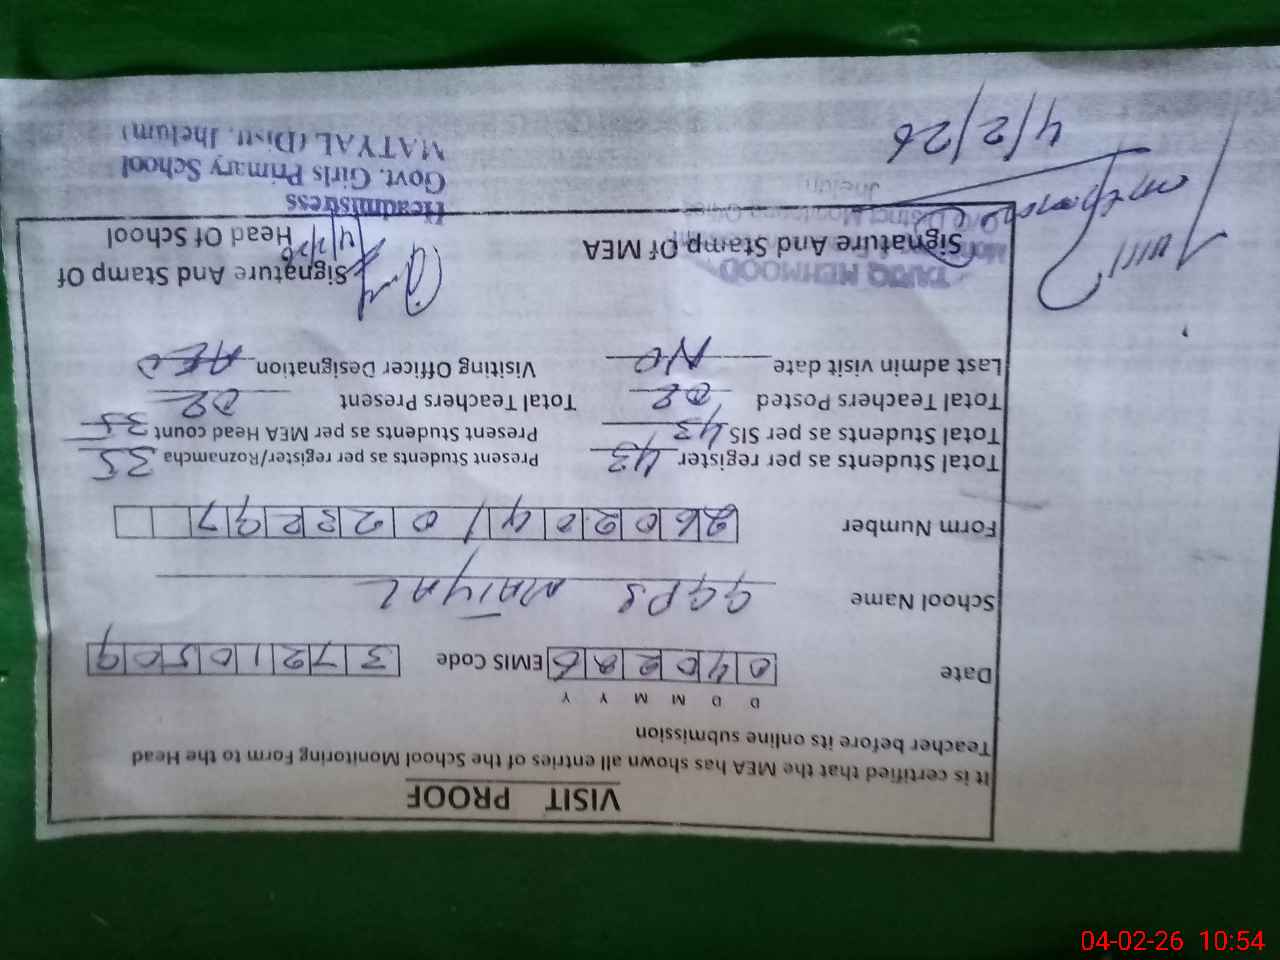 VISIT PROOF
It is certified that the MEA has shown all entries of the School Monitoring Form to the Head
Teacher before its online submission
D D M M Y Y
Date 040226 EMIS Code 37210509
School Name GGPS MATYAL
Form Number
Total Students as per register 43 Present Students as per register/Roznamcha 35
Total Students as per SIS 43 Present Students as per MEA Head count 35
Total Teachers Posted 02 Total Teachers Present 02
Last admin visit date NO Visiting Officer Designation AEO
TARIQ MEHMOOD
Signature And Stamp Of MEA
Signature And Stamp Of
Head Of School
Headmistress
Govt. Girls Primary School
MATYAL (Distt. Jhelum)
Jhelum
4/2/26
04-02-26 10:54